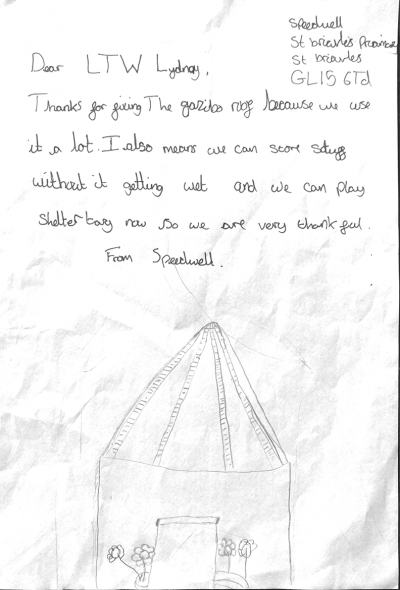 Speedwell
St briavles Primary
St briavles
GL15 6Td
Dear LTW Lydney,
Thanks for giving The gazibo roof because we use
it a lot. I also means we can store stuff
without it getting wet and we can play
Shelter tag now so we are very thankful.
From Speedwell.